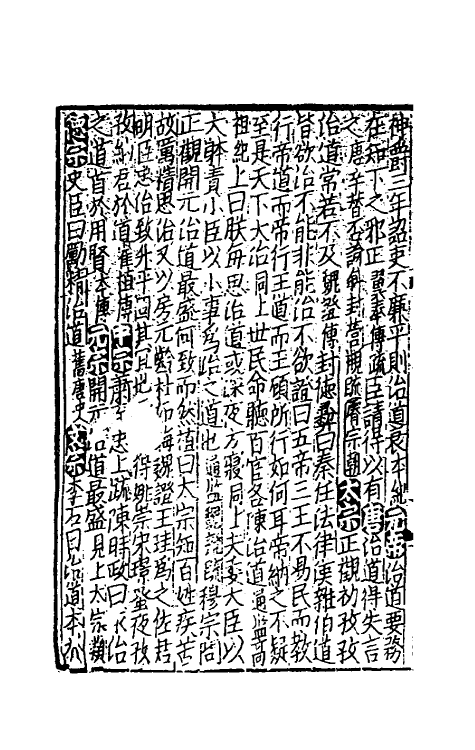 神爵三年詔吏不廉平則治道衰本紀元帝治道要務
在知下之邪正翼奉傳疏臣請得以有唐治道得失言
之唐太宗正觀初孜孜
治道常若不及魏證傳封德彝曰秦任法律漢雜伯道
皆欲治不能非能治不欲證曰五帝三王不易民而教
行帝道而帝行王道而王顧所行如何耳帝納之不疑
至是天下大治同上世民命聽百官各陳治道通鑑高
祖紀上曰朕毎思治道或深夜方寢同上夫委大臣以
大躰責小臣以小事爲治之道也通鑑魏證疏穆宗問
正觀開元治道最盛何致而然植曰太宗知百姓疾苦
故厲精思治又以房元齡杜如晦魏證王珪爲之佐君
明臣忠治致升平固其宜也得姚崇宋璟蚤夜孜
孜納君於道崔植傳中宗蕭至忠上疏陳時政曰求治
之道首於用賢本傳元宗開元治道最盛見上太宗類
德宗史臣曰勵精治道舊唐史文宗李石曰治道本於